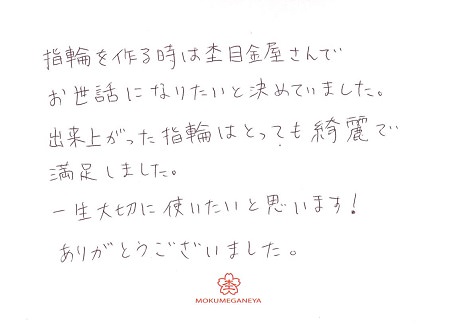 指輪を作る時は杢目金屋さんで
お世話になりたいと決めていました。
出来上がった指輪はとっても綺麗で
満足しました。
一生大切に使いたいと思います!
ありがとうございました。
杢
MOKUMEGANEYA